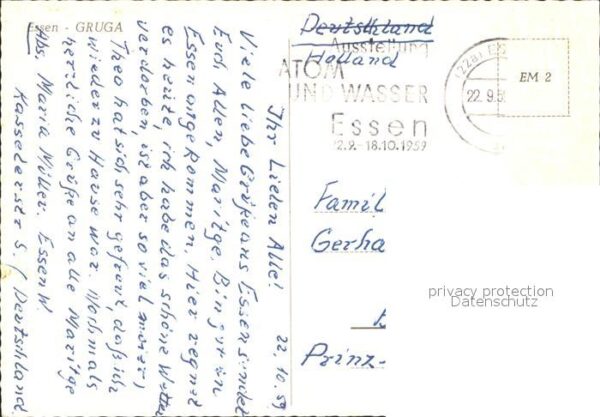 Essen - GRUGA
Ihr Lieben Alle!
22. 10. 59
Viele liebe Grüße aus Essen sendet
Euch Allen, Maritge. Bin gut in
Essen angekommen. Hier regnet
es heute, ich habe das schöne Wetter
verdorben, ist aber so viel
Theo hat sich sehr gefreut, daß ich
wieder zu Hause war. Nochmals
herzliche Grüße an alle Maritge
Abs. Maria Müller. Essen W.
5. / Deutschland
Deutschland
Holland
Ausstellung
ATOM
UND WASSER
Essen
12.9.-18.10.1959
(22a) ES
22.9.5
EM 2
Famil
Gerha
Prinz-
privacy protection
Datenschutz